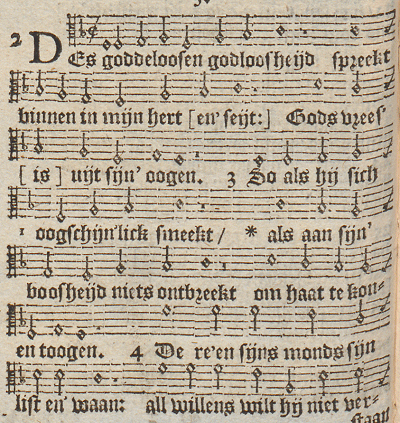 2 DEs goddeloosen godloosheijd spreekt
binnen in mijn hert [en' seijt:] Gods vrees'
[is] uijt sijn' oogen. 3 So als hij sich
¹ oogschijn'lick smeekt / * als aan sijn'
boosheijd niets ontbreekt om haat te kon-
en toogen. 4 De re'en sijns monds sijn
list en' waan: all willens wilt hij niet ver-
staan